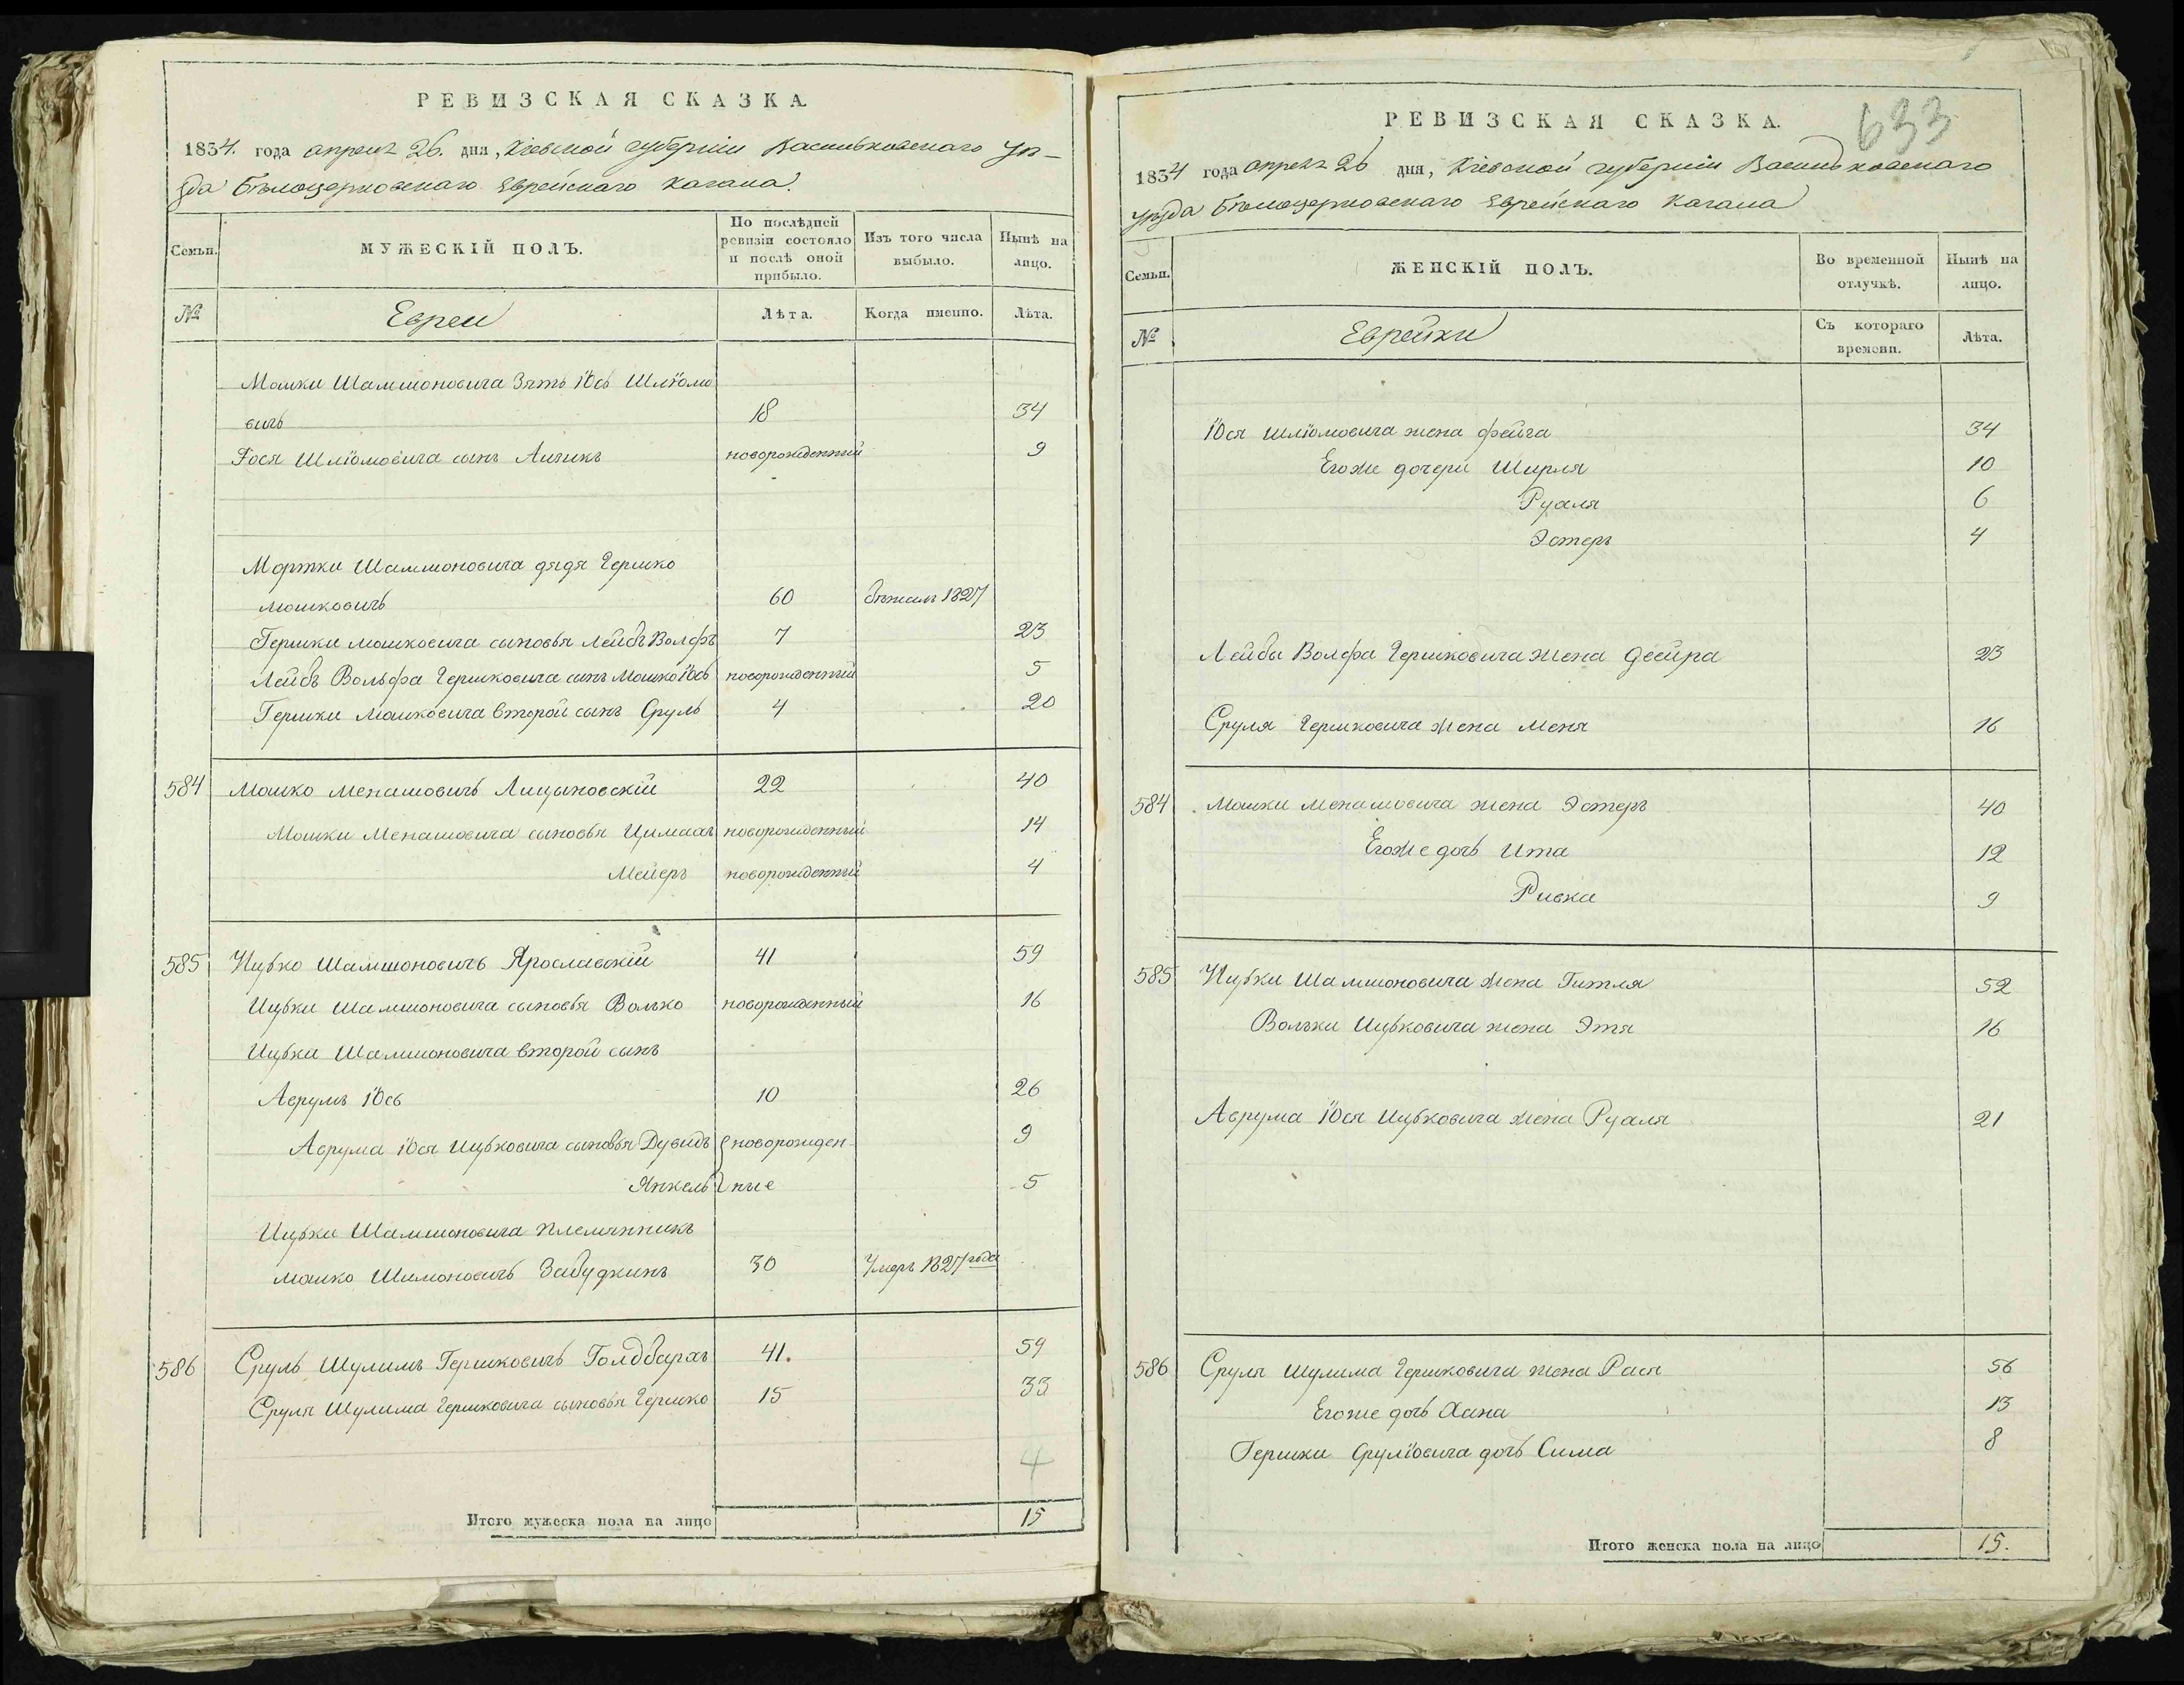 РЕВИЗСКАЯ СКАЗКА.
1834. года апреля 26. дня, Кіевской губерніи Васильковскаго уѣ-
зда Бѣлоцерковскаго Еврейскаго Кагала.
Семьи.
МУЖЕСКІЙ ПОЛЪ.
По послѣдней ревизіи состояло и послѣ оной прибыло.
Изъ того числа выбыло.
Нынѣ на лицо.
№
Евреи
Лѣта.
Когда именно.
Лѣта.
Мошки Шамшоновича Зять Іось Шліомо
вичь 18 34
Іося Шліомовича сынъ Аицикъ новорожденный 9
Мортки Шамшоновича дядя Гершко
Мошковичь 60 бѣжалъ 1827
Гершки Мошковича сыновья Лейбъ Волфъ 7 23
Лейбъ Вольфа Гершковича сынъ Мошко Іось новорожденный 5
Гершки Мошковича второй сынъ Сруль 4 20
584 Мошко Менашовичь Лицыновскій 22 40
Мошки Менашовича сыновья новорожденный 14
Мейеръ новорожденный 4
585 Ицько Шамшоновичь Ярославскій 41 59
Ицьки Шамшоновича сыновья Волько новорожденный 16
Ицька Шамшоновича второй сынъ
Аврумъ Іось 10 26
Аврума Іося Ицьковича сыновья Дувидъ новорожден 9
Янкель ные 5
Ицьки Шамшоновича племянникъ
Мошко Шимоновичь Забудкинъ 30 Умеръ 1827 года
586 Сруль Шулимъ Гершковичь Голдбархъ 41. 59
Сруля Шулима Гершковича сыновья Гершко 15 33
4
Итого мужеска пола на лицо 15
633
РЕВИЗСКАЯ СКАЗКА.
1834 года апреля 26 дня, Кіевской губерніи Васильковскаго
уѣзда Бѣлоцерковскаго Еврейскаго Кагала
Семьи.
ЖЕНСКІЙ ПОЛЪ.
Во временной отлучкѣ.
Нынѣ на лицо.
№
Еврейки
Съ котораго времени.
Лѣта.
Іося Шліомовича жена Фейга 34
Егоже дочери Ширля 10
Рухля 6
Эстеръ 4
Лейбы Волфа Гершковича жена Двейра 23
Сруля Гершковича жена Меня 16
584 Мошки Менашовича жена Эстеръ 40
Егоже дочь Ита 12
Ривка 9
585 Ицьки Шамшоновича жена Гитля 52
Вольки Ицьковича жена Этя 16
Аврума Іося Ицьковича жена Рухля 21
586 Сруля Шулима Гершковича жена Рася 56
Егоже дочь Хана 13
Гершки Сруліовича дочь Сима 8
Итого женска пола на лицо 15.